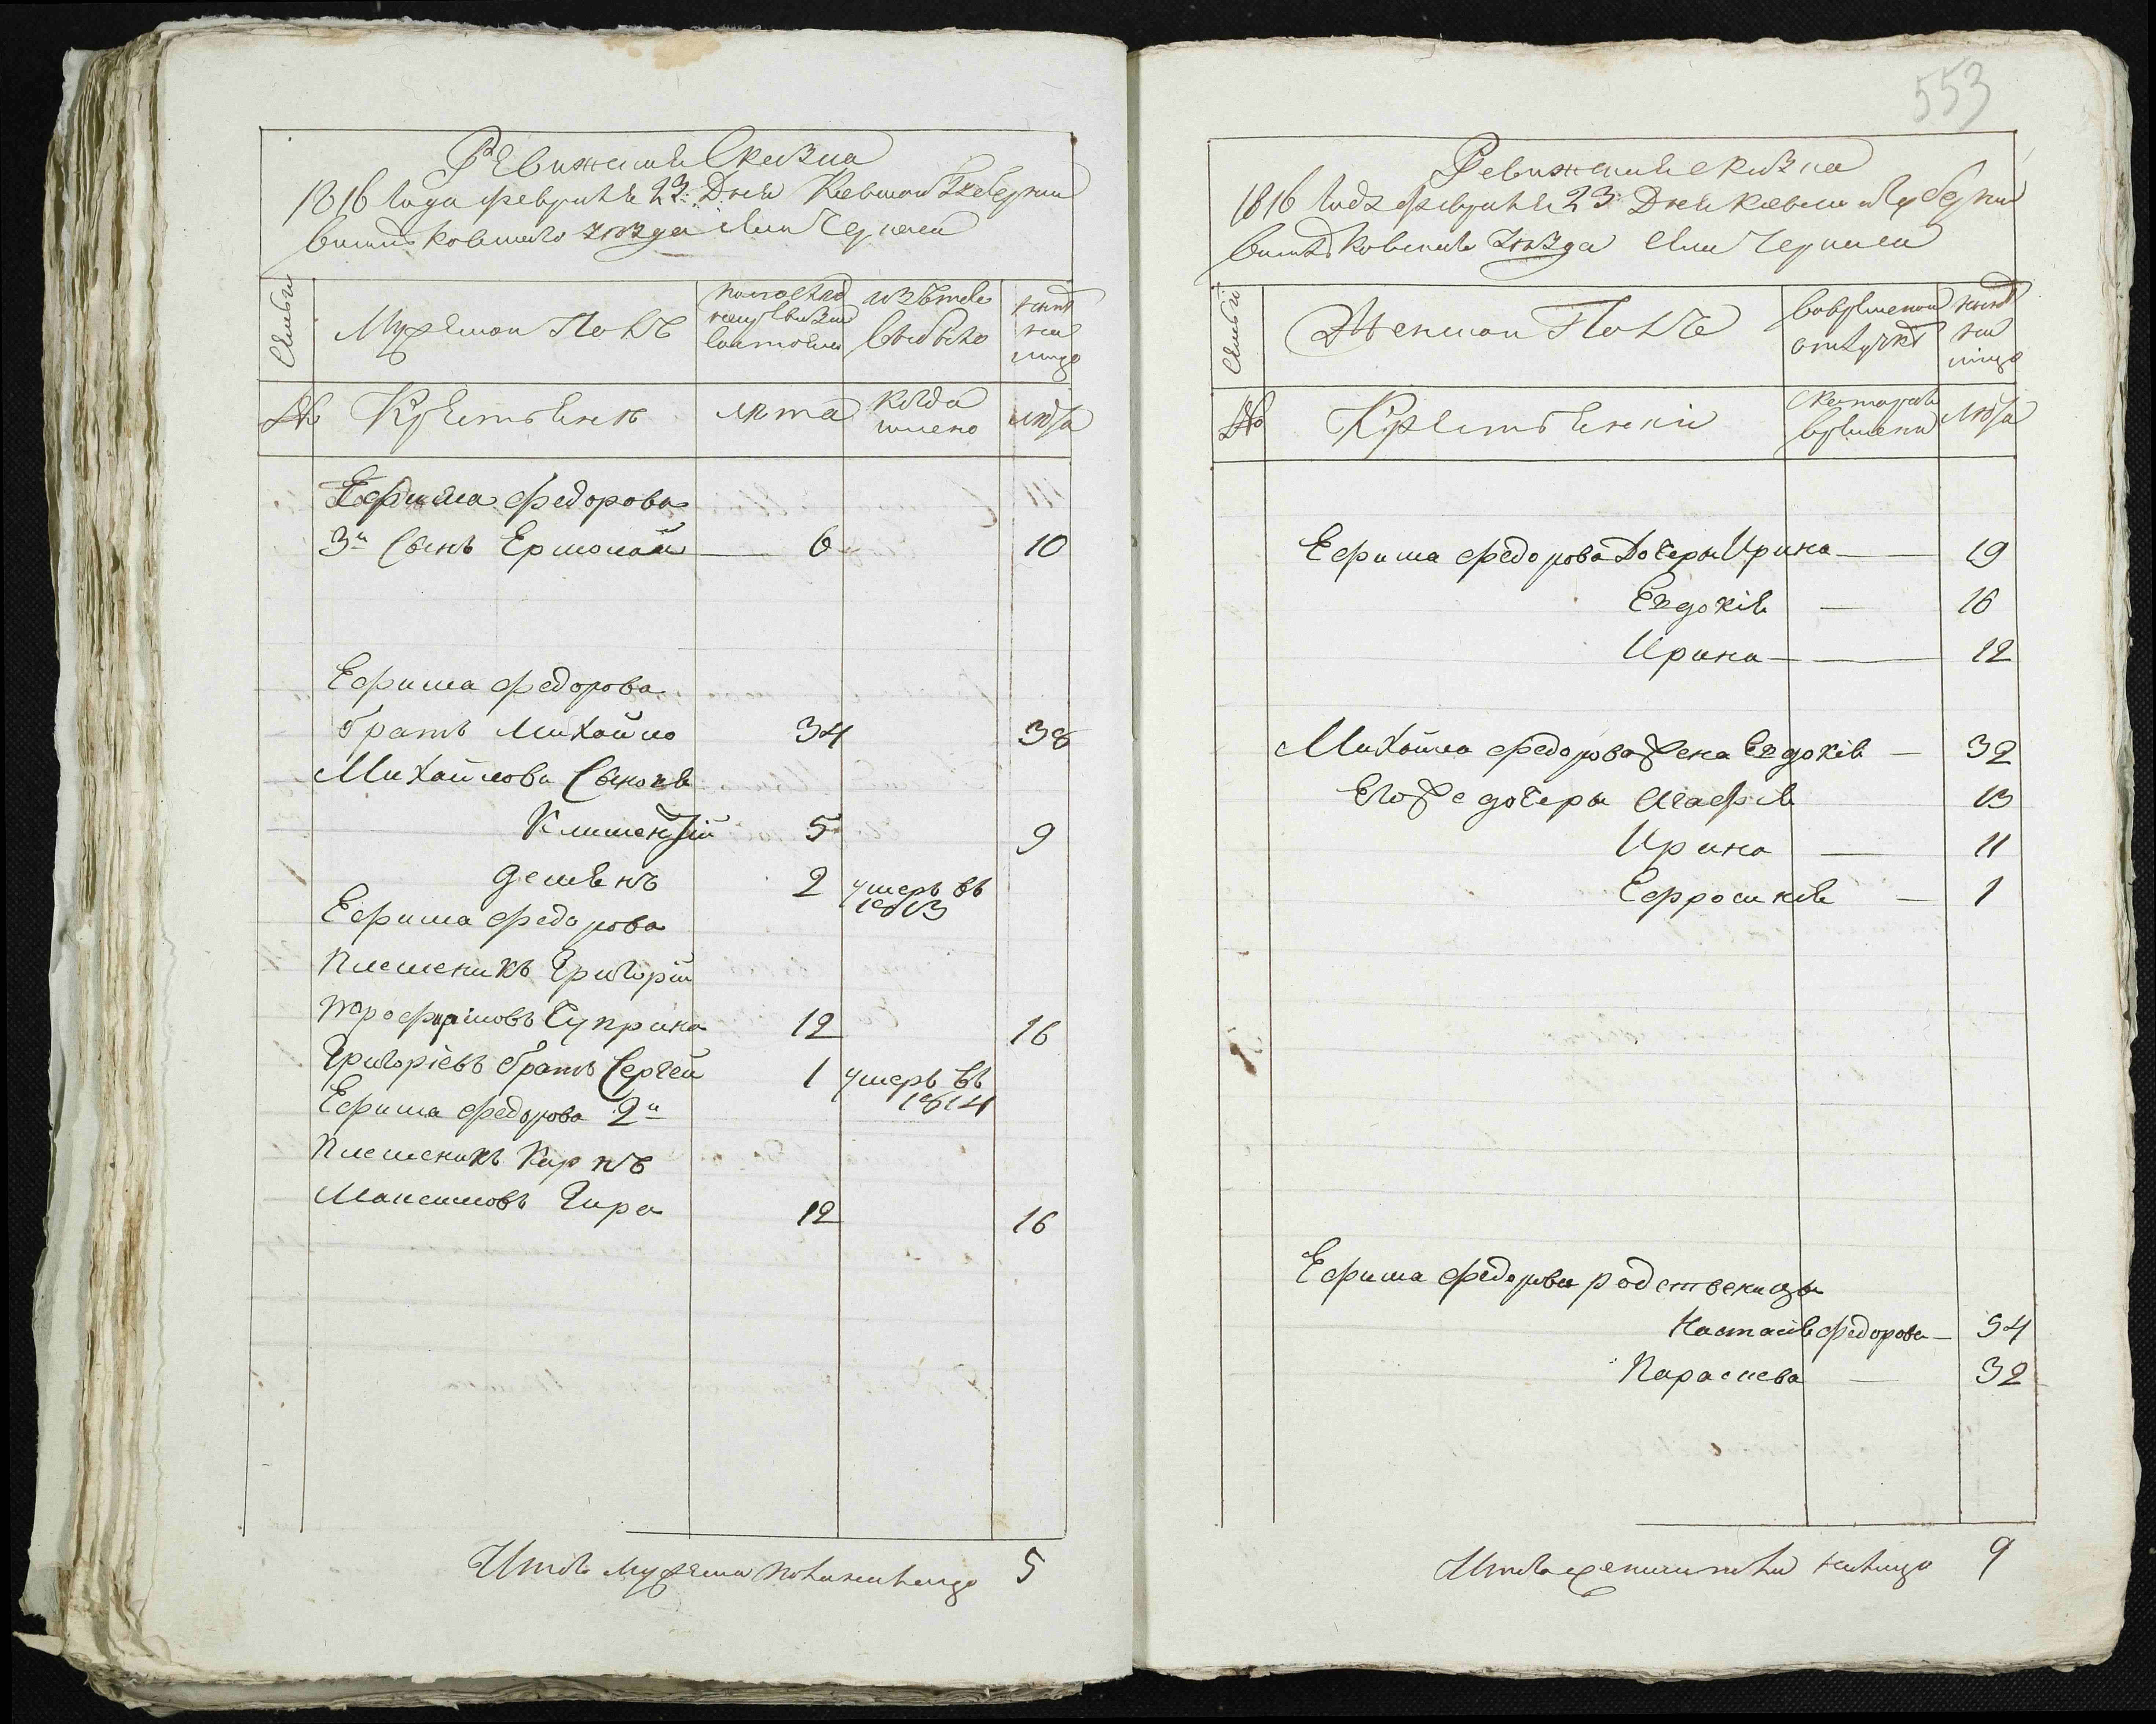 Ревижская Сказка
1816 Года февраля 23: Дня Киевской Губернии
Василковского уезда села Черкаси
Семьи
Мужеской Полъ
по последней ревизии состояло
изъ того выбыло
ныне на лицо
№
Крестьянъ
лета
когда имено
лета
Ефима федорова
3й Сынъ Ермолай 6 10
Ефима федорова
братъ Михайло 34 38
Михайлова Сыновя
Климентій 5 9
демянъ 2 умеръ въ 1813
Ефима федорова
племеникъ Григорій
трофимовъ Чуприна 12 16
Григоріевъ братъ Сергей 1 умеръ въ 1814
Ефима федорова 2й
племеникъ Карпъ
Максимовъ Гира 12 16
Итого мужеска пола налицо 5
553
Ревижская сказка
1816 Года февраля 23: Дня Киевской Губернии
Василковского уезда села Черкаси
Семьи
Женской Полъ
во временной отлучке
ныне на лицо
№
Крестьянки
с котораго времени
лета
Ефима федорова дочеры Ирина — 19
Евдокія — 16
Ирина — 12
Михайла федорова жена Евдокія — 32
Его же дочеры Агафія 13
Ирина — 11
Ефросинія — 1
Ефима федорова родственицы
Настасія федорова — 54
Параскева — 32
Итого женска пола налицо 9